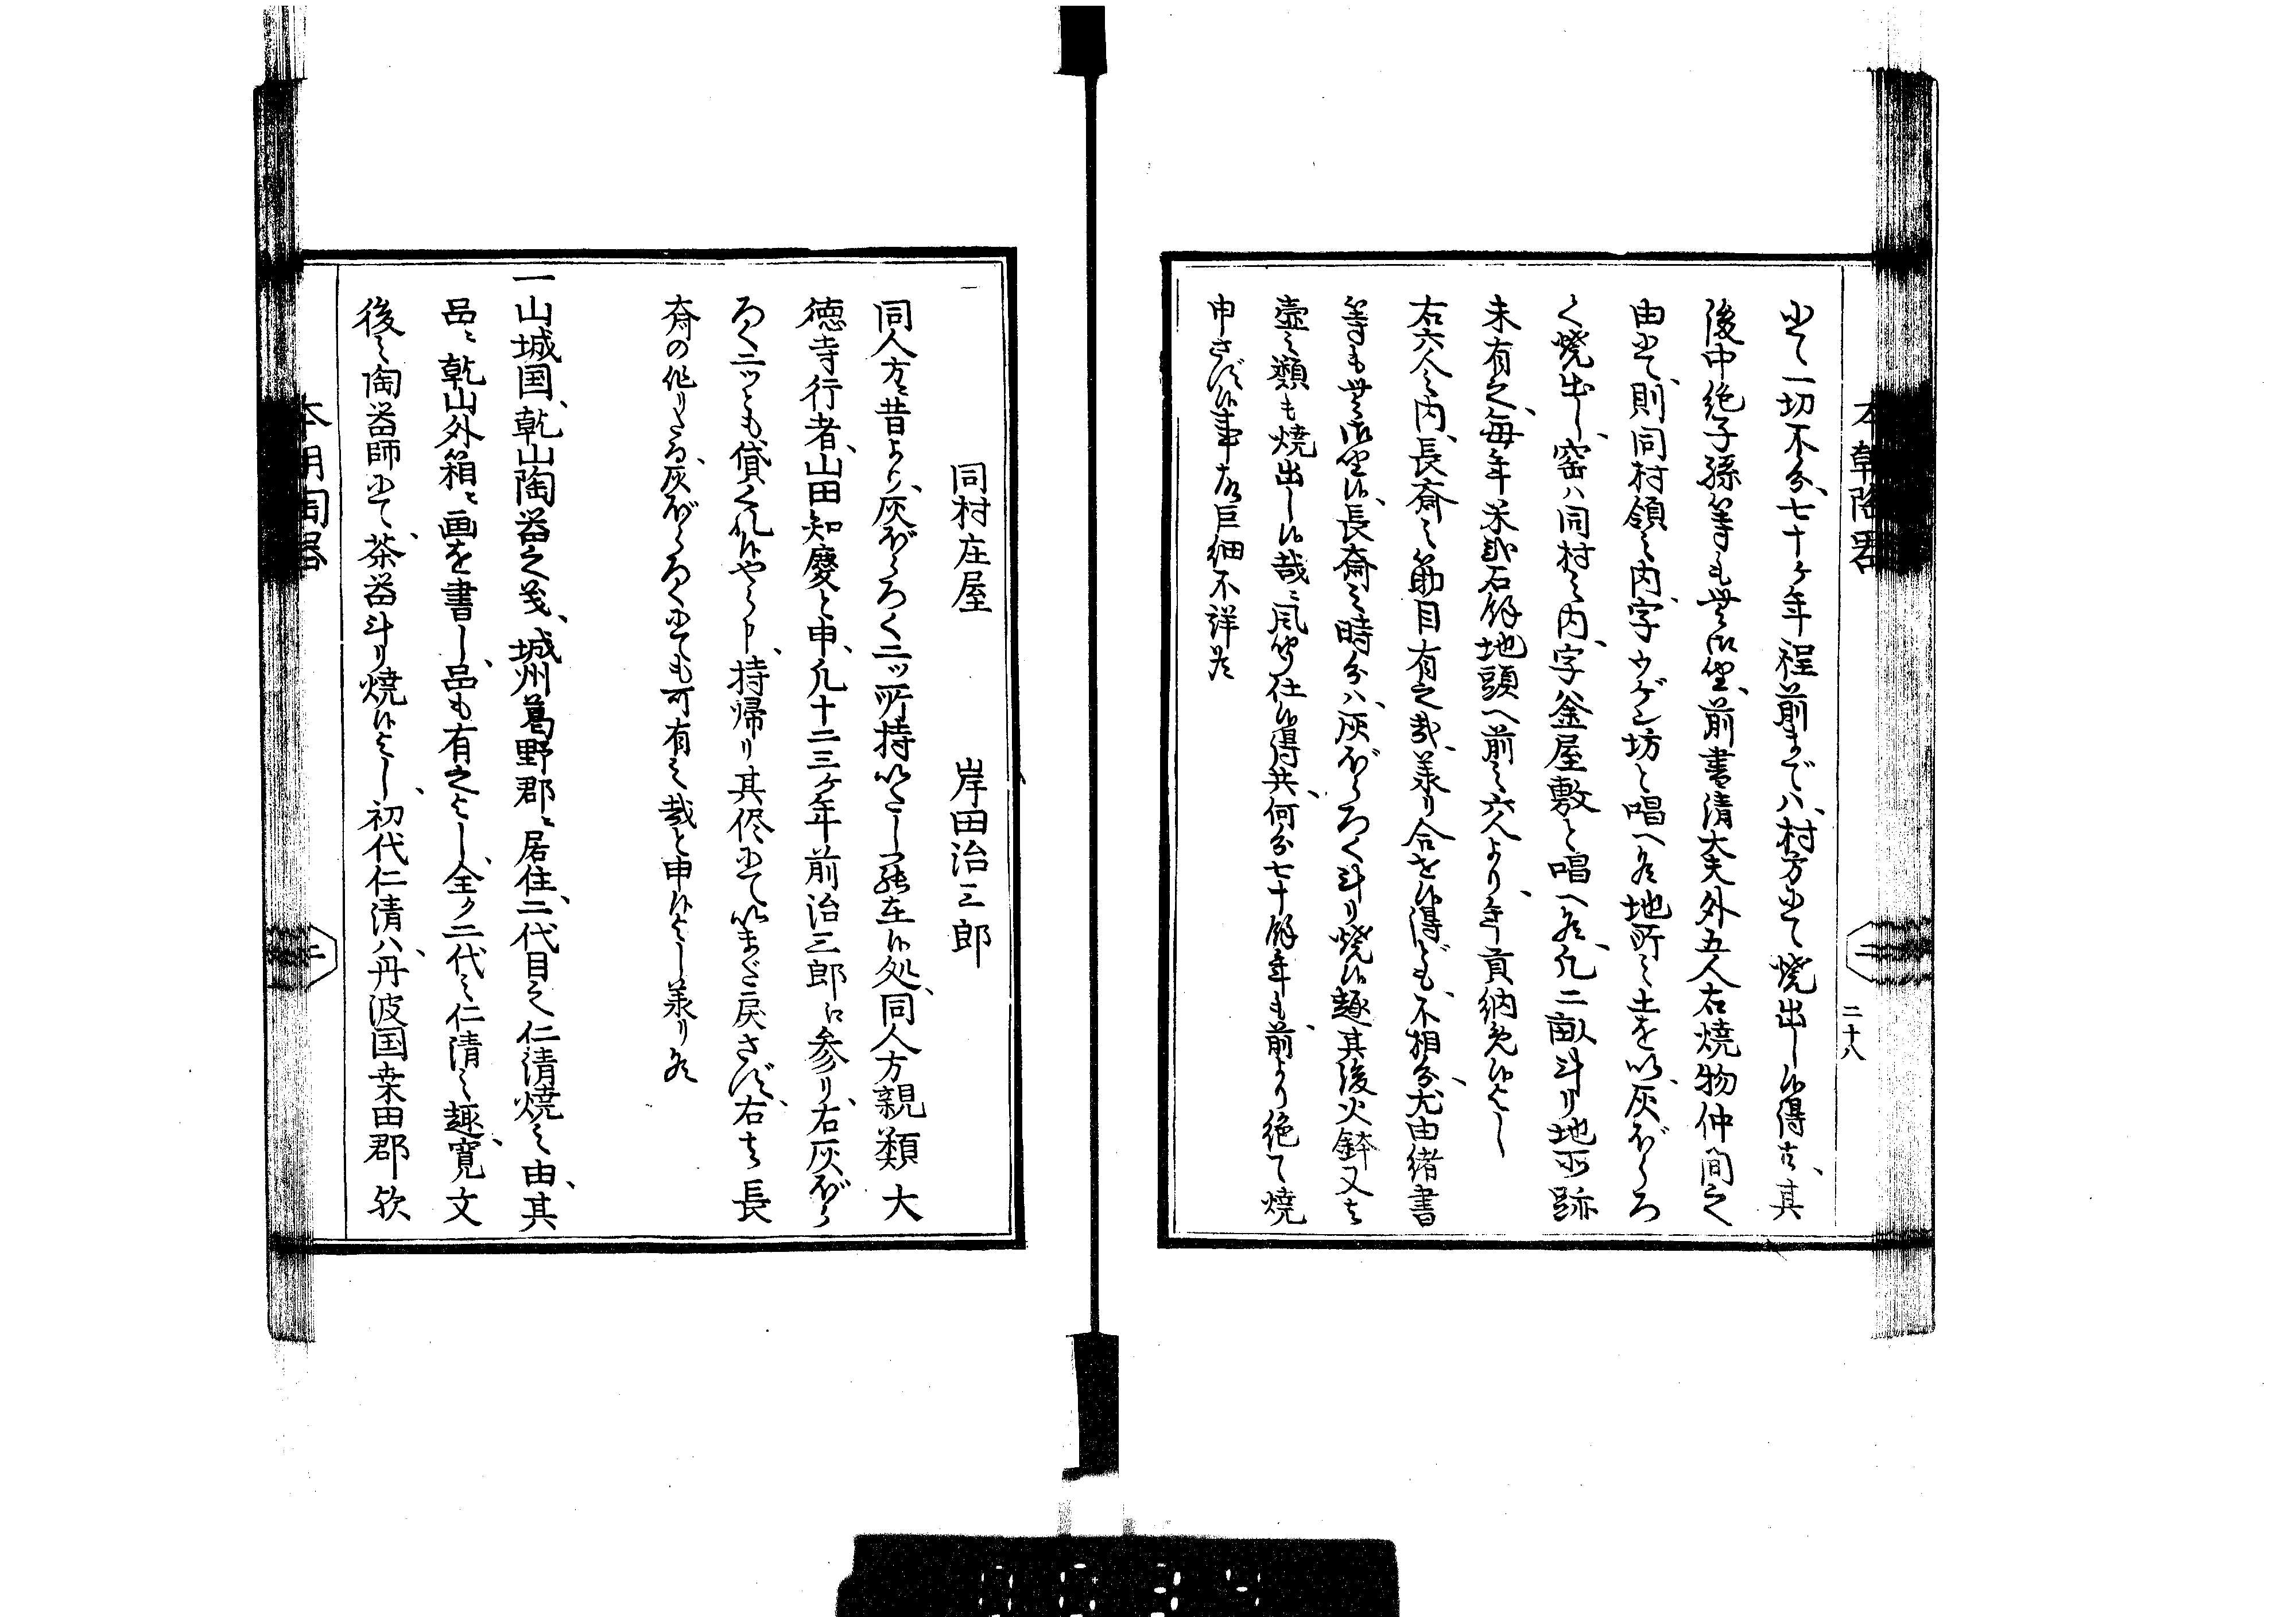 本朝陶器
二
二十八
にて一切不分、七十ヶ年程前まで八、村方にて焼出し候得共、其
後中絶子孫等も無御座、前書清大夫外五人右焼物仲間之
由にて、則同村領之内、字ウゲン坊と唱へ候地所之土を以、灰ほうろ
く焼出し、窑ハ同村之内、字釜屋敷と唱へ候、凡二畝斗リ地所跡
未有之、毎年米弐石餘地頭へ前之六人より、年貢納免候よし
右六人之内、長斎之筋目有之哉、義リ合を候得ども、不相分、尤由緒書
等も無御座候、長斎之時分ハ、灰ほうろく斗リ焼候趣、其後火鉢又は
壺之類も焼出し候哉ニ風聞仕候得共、何分七十餘年も前より絶て焼
申さず候事故巨細不詳候
一
同村庄屋 岸田治三郎
同人方ニ昔より、灰ほうろく二ッ所持いたし罷在候処、同人方親類大
徳寺行者、山田知慶と申、凡十二三ヶ年前治三郎に参リ、右灰ほう
ろく二ッとも、貸くれ候やう申、持帰リ其侭にていまだ戻さず、右は長
斎の作りたる、灰ほうろくにても可有之哉と申候よし義リ候
一山城国、乾山陶器之義、城州葛野郡ニ居住、二代目之仁清焼之由、其
品ニ乾山外箱ニ画を書し、品も有之よし、全ク二代之仁清之趣、寛文
後之陶器師にて、茶器斗リ焼候よし、初代仁清ハ、丹波国桒田郡欤
本朝陶器
二